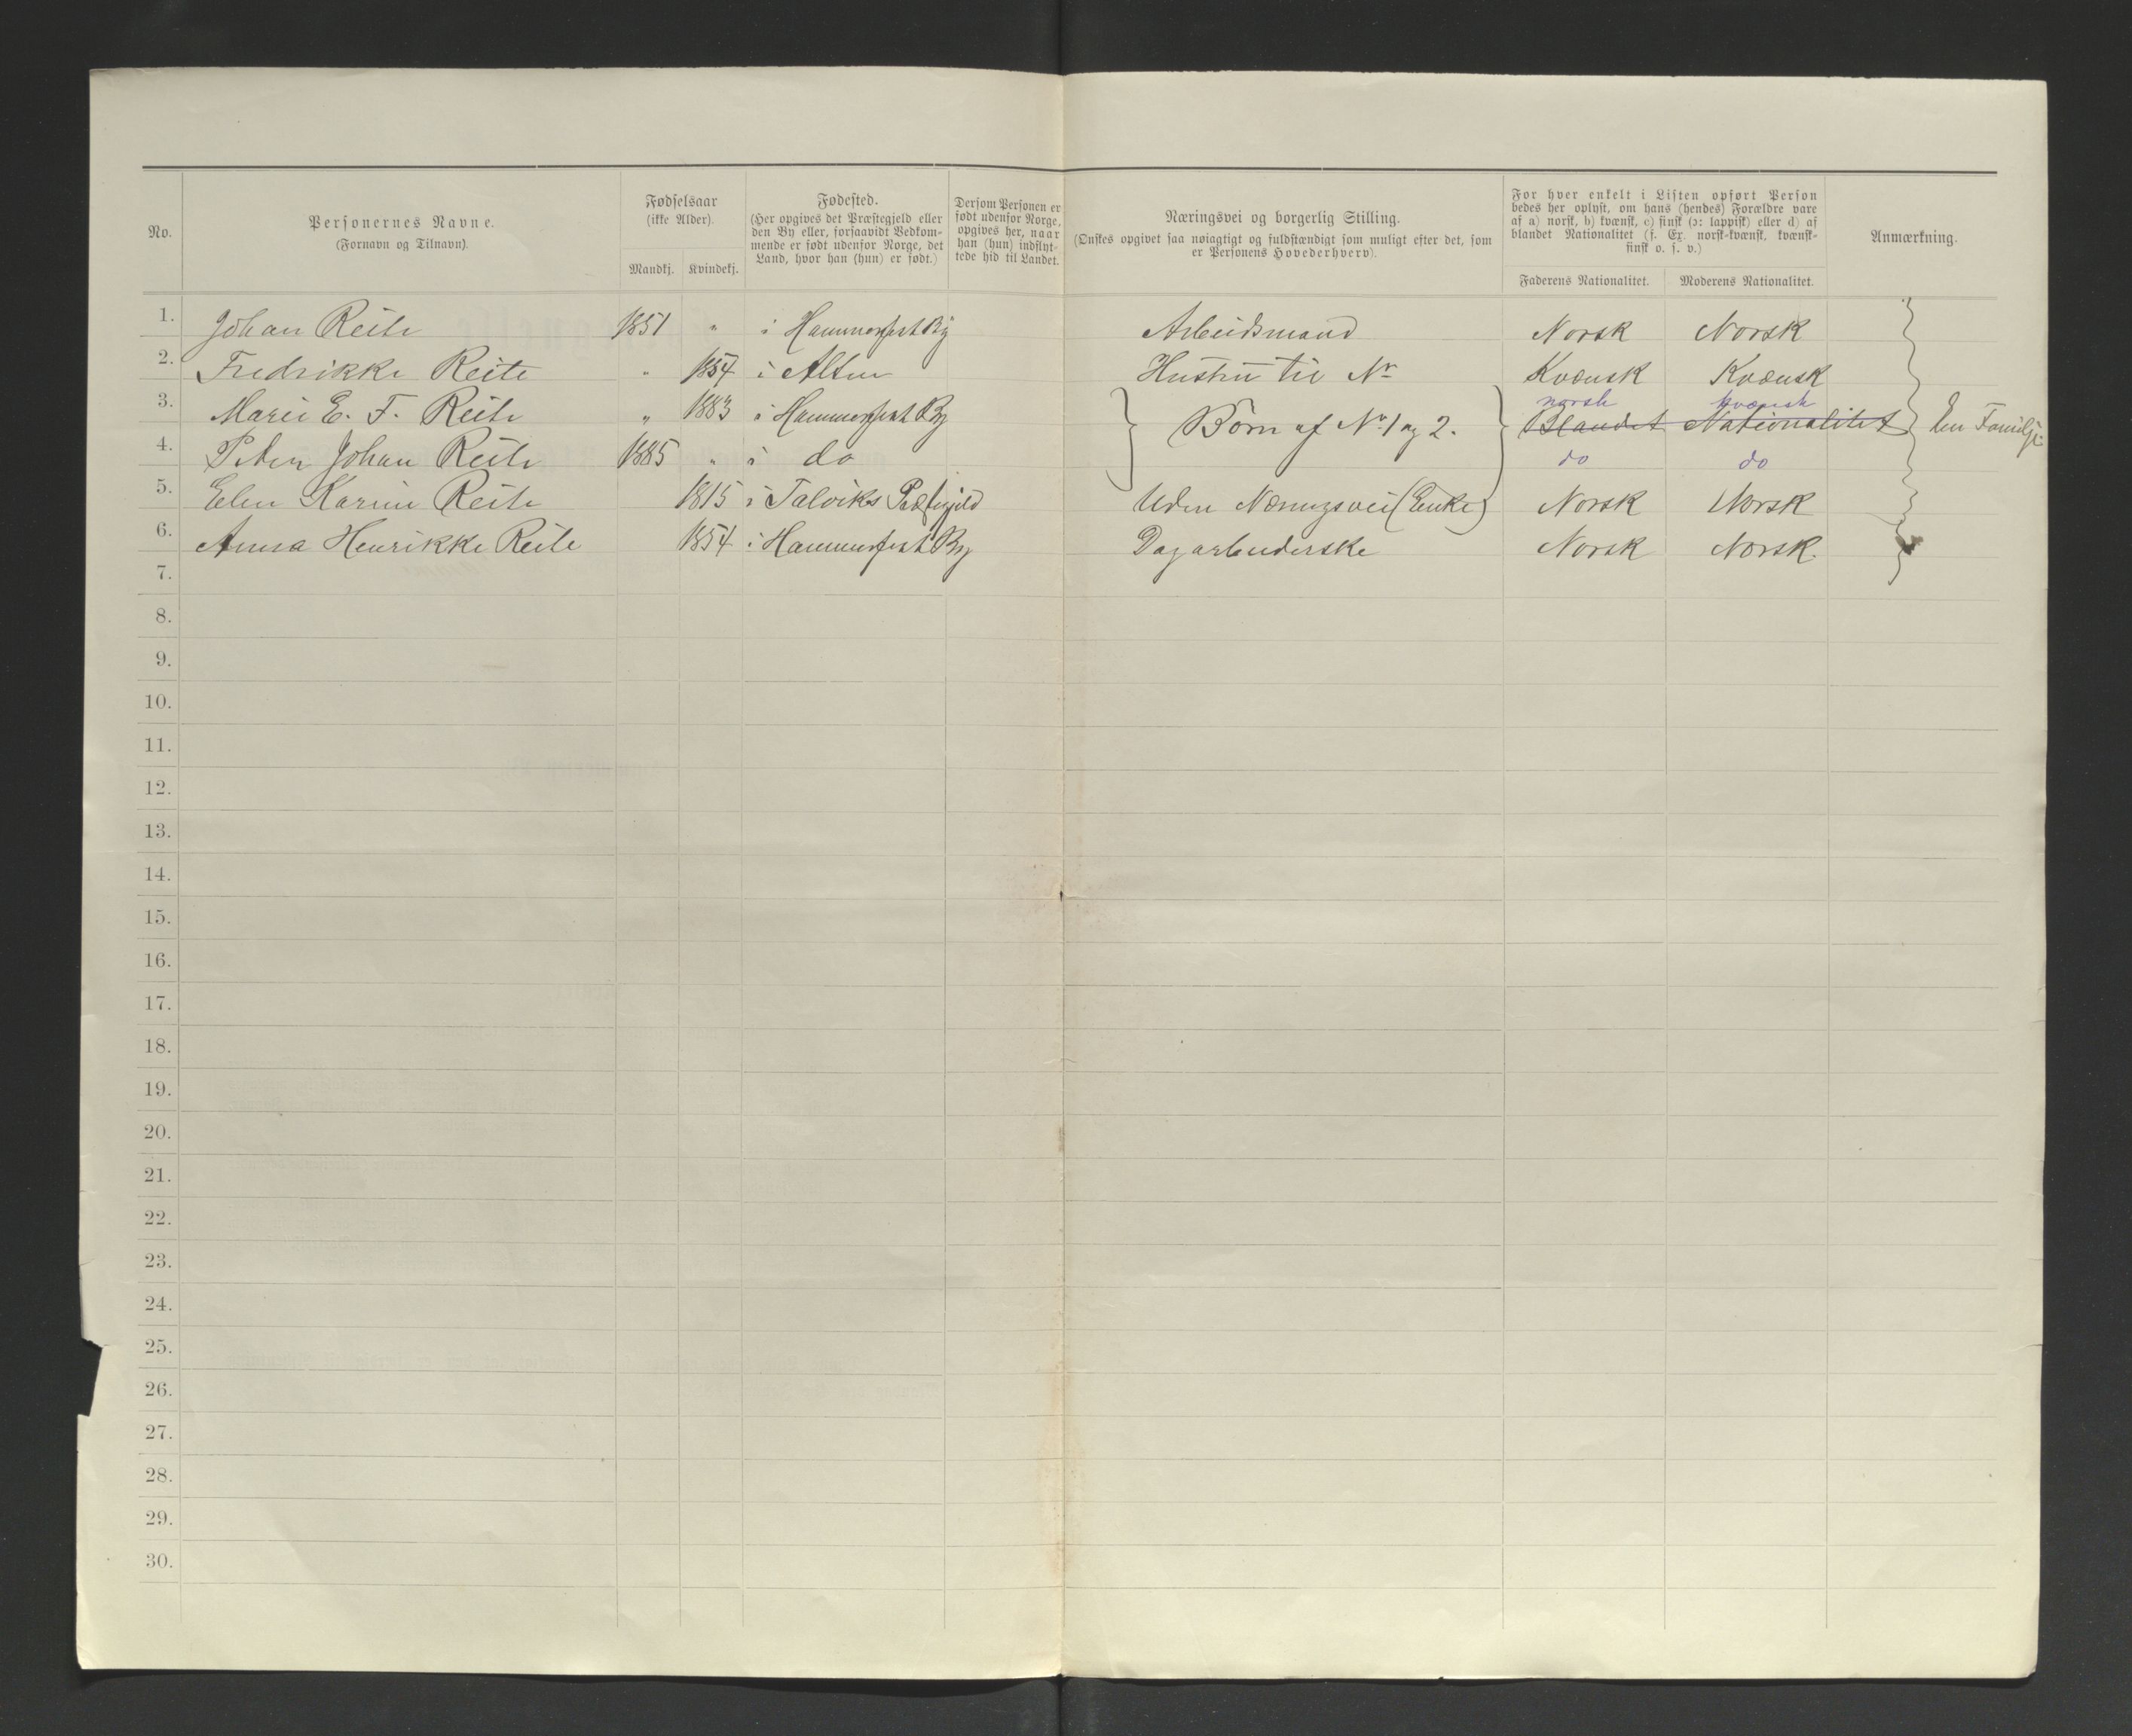 No.
Personernes Navne.
(Fornavn og Tilnavn).
Fødselsaar
(ikke Alder).
Mandkj.
Kvindekj.
Fødested.
(Her opgives det Præstegjeld eller
den By eller, forsaavidt Vedkom-
mende er født udenfor Norge, det
Land, hvor han (hun) er født.)
Dersom Personen er
født udenfor Norge,
opgives her, naar
han (hun) indflyt-
tede hid til Landet.
Næringsvei og borgerlig Stilling.
(Ønskes opgivet saa nøiagtigt og fuldstændigt som muligt efter det, som
er Personens Hovederhverv).
For hver enkelt i Listen opført Person
bedes her oplyst, om hans (hendes) Forældre vare
af a) norsk, b) kvænsk, c) finsk (ɔ: lappisk) eller d) af
blandet Nationalitet (f. Ex. norsk-kvænsk, kvænsk-
finsk o. s. v.)
Faderens Nationalitet.
Moderens Nationalitet.
Anmærkning.
1. Johan Reite 1851 " i Hammerfest By Arbeidsmand Norsk Norsk
2. Fredrikke Reite " 1854 i Alten Hustru til Nr Kvænsk Kvænsk
norsk kvænsk
3. Marie E. F. Reite " 1883 i Hammerfest By } Børn af No 1 og 2. } Blandet Nationalitet } En Familje
4. Peter Johan Reite 1885 " i do do do
5. Elen Karine Reite 1815 i Talviks Uden Næringsvei (Enke) Norsk Norsk
6. Anna Henrikke Reite 1854 i Hammerfest By Dagarbeiderske Norsk Norsk.
7.
8.
9.
10.
11.
12.
13.
14.
15.
16.
17.
18.
19.
20.
21.
22.
23.
24.
25.
26.
27.
28.
29.
30.